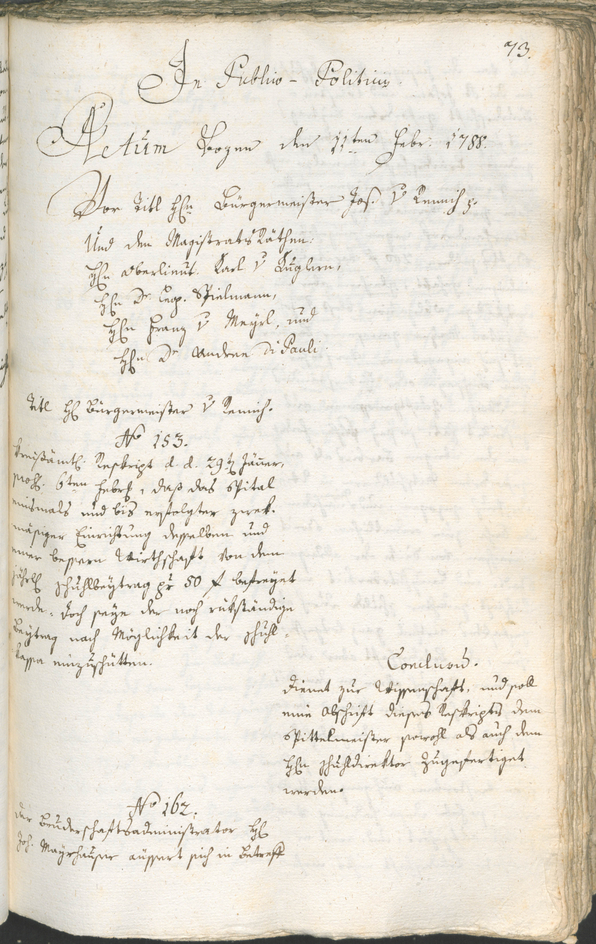 73.
In Publico-Politicis.
Actum Bozen den 11ten Febr: 1788.
Vor Titl Hhn Bürgermeister Jos. v Remich p:
Und den Magistrats Räthen:
Hhn Oberlieut. Karl v Kuglern,
Hhn Dr Leop. Spielmann,
Hhn Franz v Meyrl, und
Hhn Dr Andree Di Pauli
Titl Hh Bürgermeister v Remich.
No 153.
Kreißämtl. Reskript d. d. 29t Jäner,
6ten Febr, daß das Spital
nunmals und bis erfolgter zwek-
mäsiger Einrichtung desselben und
einer bessern Wirthschaft von dem
jährl Schuhlbeytrag pr 50 f befreyet
werde. doch seye der noch rükständige
Beytrag nach Möglichkeit der Schuhl-
kassa einzuschütten.
Conclusum.
Dienet zur Wissenschaft, und soll
eine Abschrift dieses Reskripts dem
Spittelmeister sowohl als auch dem
Hhn Schuhldirektor zugefertiget
werden.
No 162.
Der Bruderschaftsadministrator Hh
Joh. Mayrhauser äussert sich in Betreff